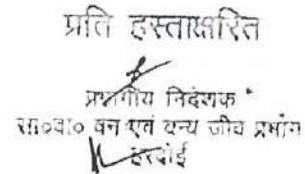 प्रति हस्ताक्षरित
प्रभागीय निदेशक
सा०वा० वन एवं वन्य जीव प्रभाग
हरदोई